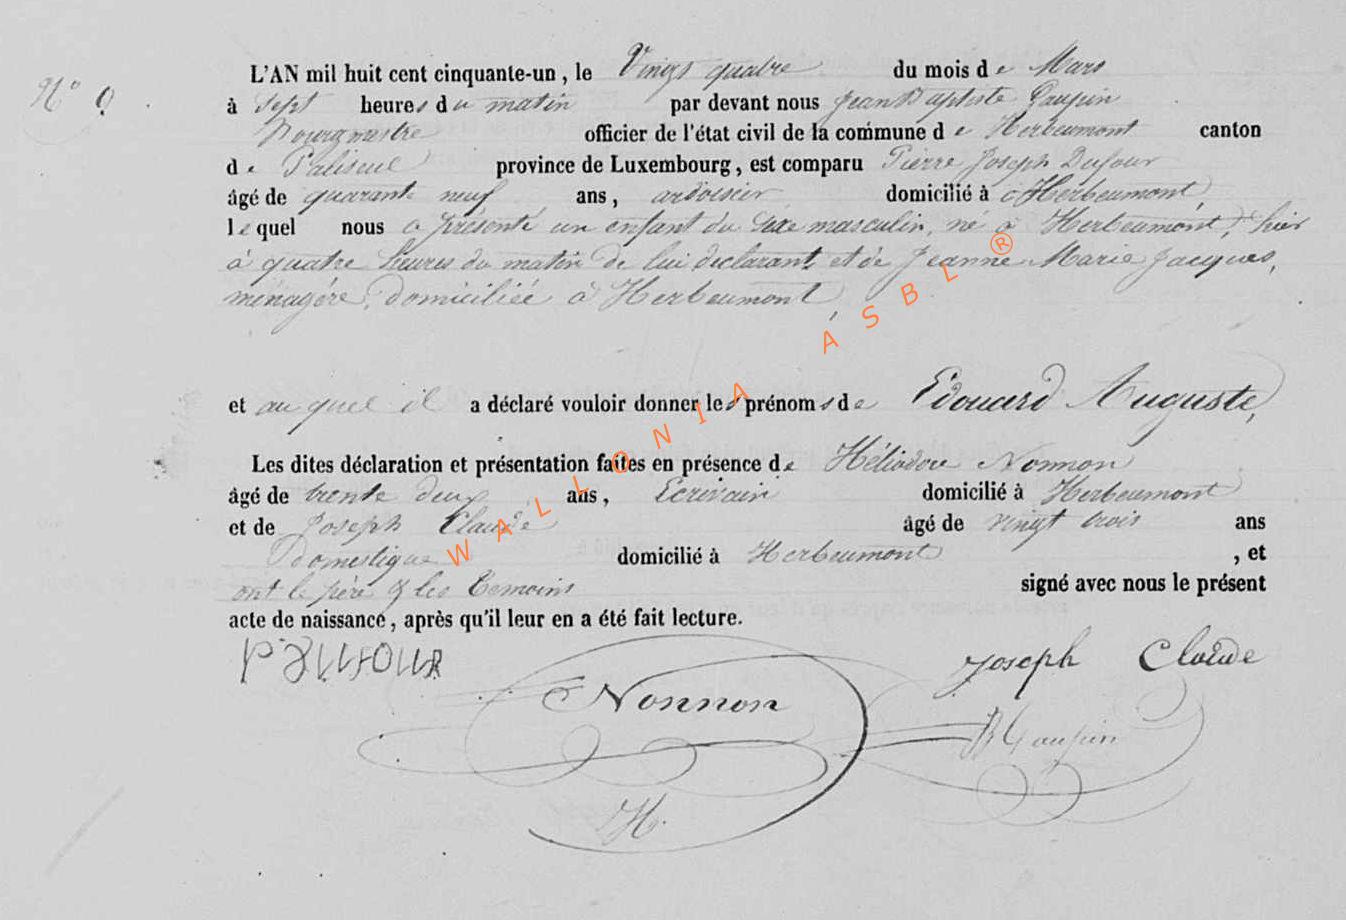 N° 9.
L'AN mil huit cent cinquante-un, le Vingt quatre du mois de Mars
à sept heures du matin par devant nous Jean Baptiste Gaupin
Bourgmestre officier de l'état civil de la commune de Herbeumont canton
de Paliseul province de Luxembourg, est comparu Pierre Joseph Dufour
âgé de quarante neuf ans, ardoisier domicilié à Herbeumont,
lequel nous a présenté un enfant du sexe masculin, né à Herbeumont, hier
à quatre heures du matin de lui declarant, et de Jeanne Marie Jacques,
ménagère, domiciliée à Herbeumont,
et au quel il a déclaré vouloir donner les prénoms de Edouard Auguste,
Les dites déclaration et présentation faites en présence de Héliodore Nonnon
âgé de trente deux ans, Ecrivain domicilié à Herbeumont
et de Joseph Claude âgé de vingt trois ans
Domestique domicilié à Herbeumont , et
ont le père & les temoins signé avec nous le présent
acte de naissance, après qu'il leur en a été fait lecture.
P. Dufour Joseph Claude
Nonnon
JB Gaupin
H.
WALLONIA ASBL ®